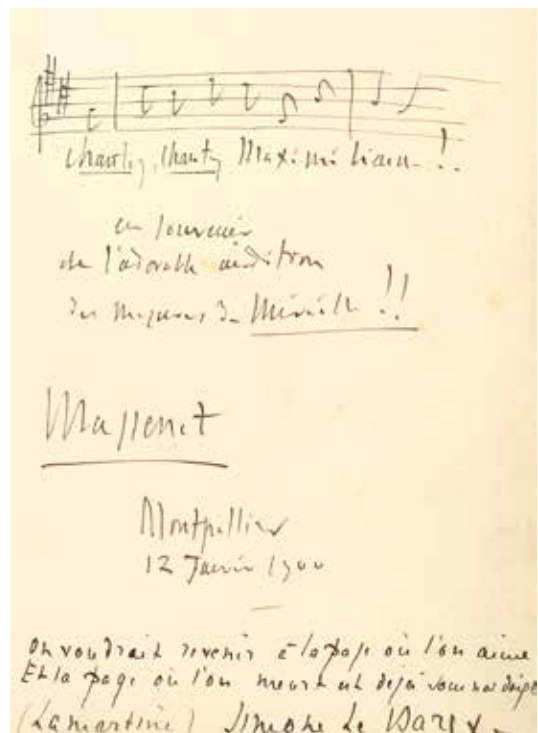 Chantez, Chantez !!
en souvenir
de l'adorable audition
de Mireille !!
Massenet
Montpellier
12 Janvier 1900
On voudrait revenir à la page où l'on aime
Et la page où l'on meurt est déjà sous nos doigts
(Lamartine) Simone Le Bargy